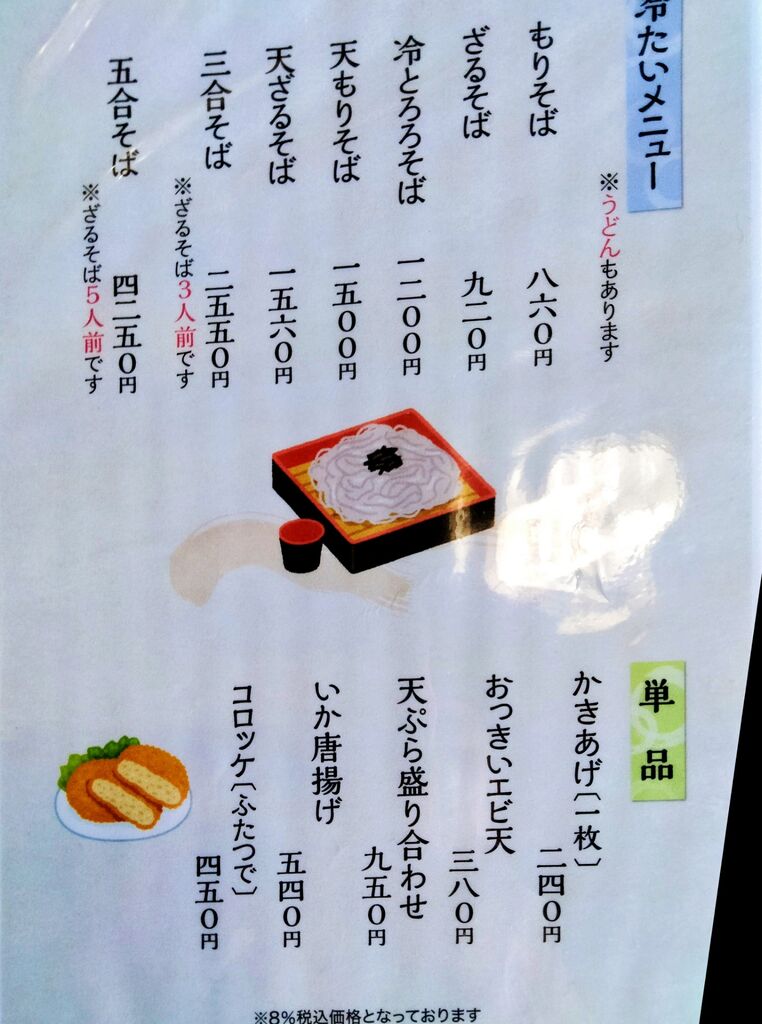 冷たいメニュー
※うどんもあります
もりそば 八六〇円
ざるそば 九二〇円
冷とろろそば 一二〇〇円
天もりそば 一五〇〇円
天ざるそば 一五六〇円
三合そば 二五五〇円
※ざるそば3人前です
五合そば 四二五〇円
※ざるそば5人前です
単品
かきあげ〔一枚〕 二四〇円
おっきいエビ天 三八〇円
天ぷら盛り合わせ 九五〇円
いか唐揚げ 五四〇円
コロッケ〔ふたつで〕 四五〇円
※8%税込価格となっております